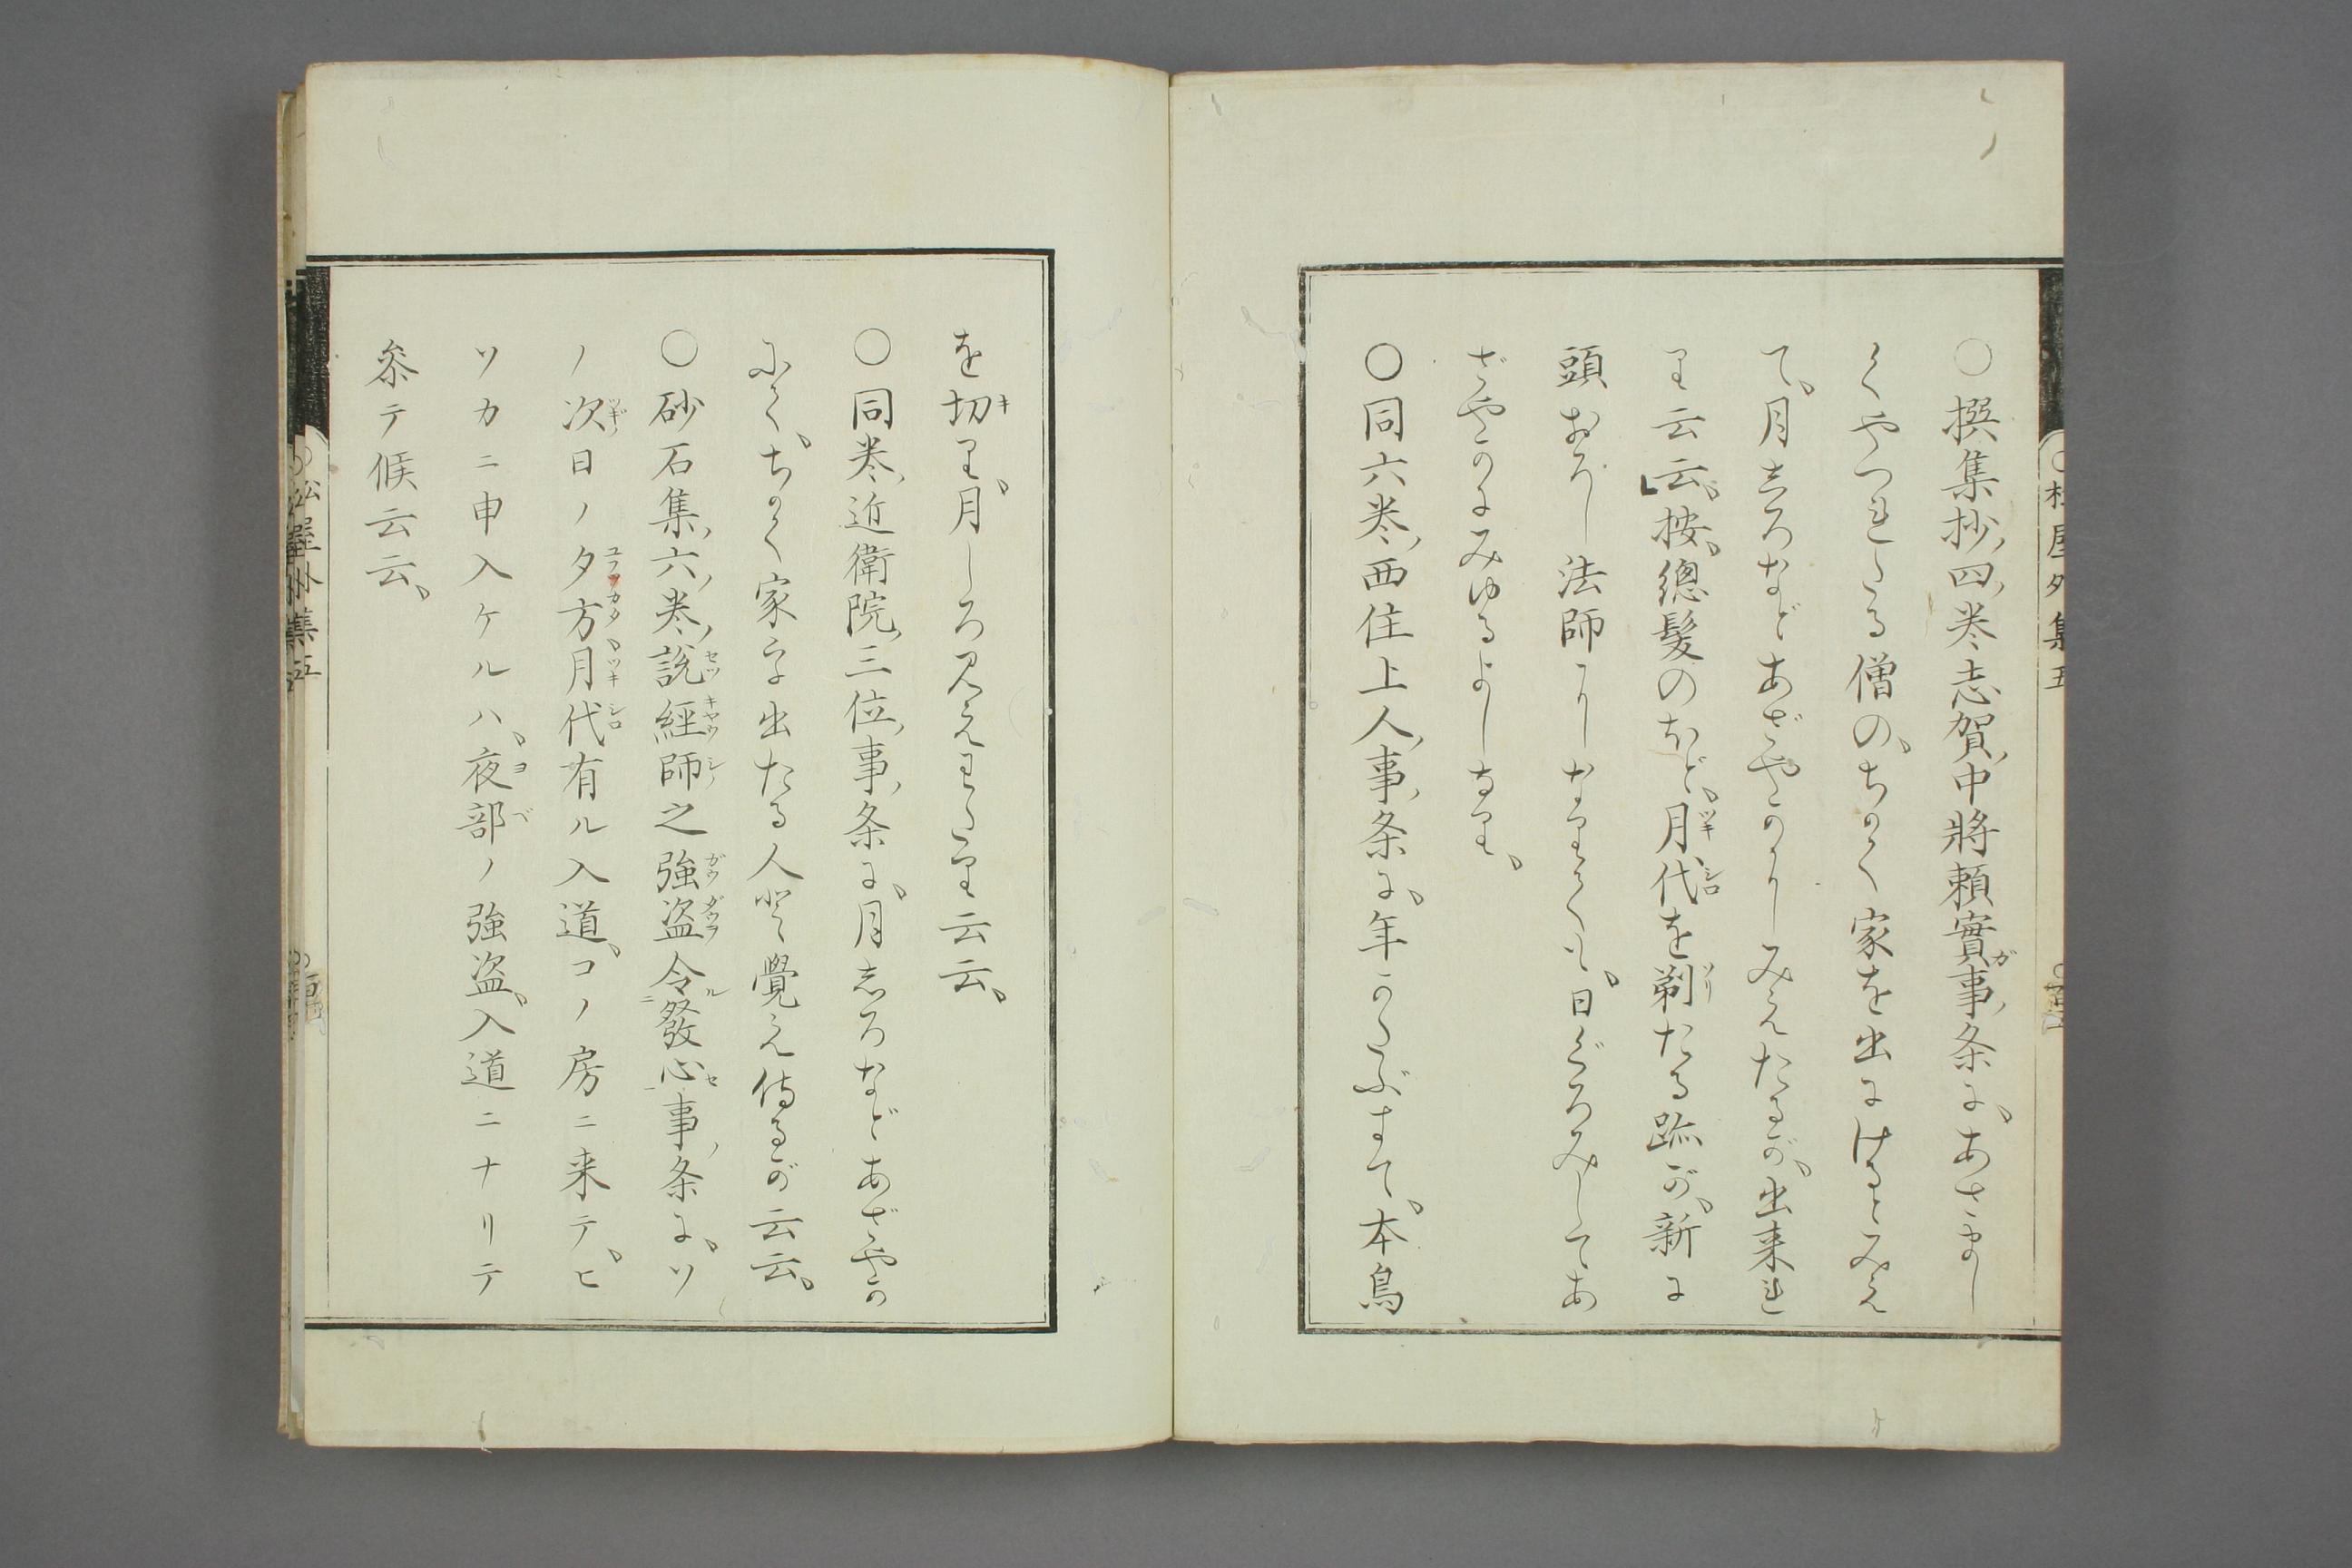 ○撰集抄、四巻志賀、中將頼實ガ事、条に、あさまし
くやつれたる僧の、ちかく家を出にけるとみえ
て、月しろなどあざやかにしみえたるが、出来れ
り云云、按、總髮のほど、月代を剃たる跡が、新に
頭おろし法師にしなりても、日ぐろみしてあ
ざやかにみゆるよしなり、
○同六巻、西住上人、事、条に、年かたぶきて、本鳥
を切り、月しろ見えわたり云云、
○同巻、近衛院、三位、事、条に、月しろなどあざやか
にて、ちかく家を出たる人と覺え侍るが云云、
○砂石集、六、巻、説經師之強盗令發心事、条に、ソ
ノ次日ノ夕方、月代有ル入道、コノ房ニ来テ、ヒ
ソカニ申入ケルハ、夜部ノ強盗、入道ニナリテ
参テ候云云、
松屋外集五